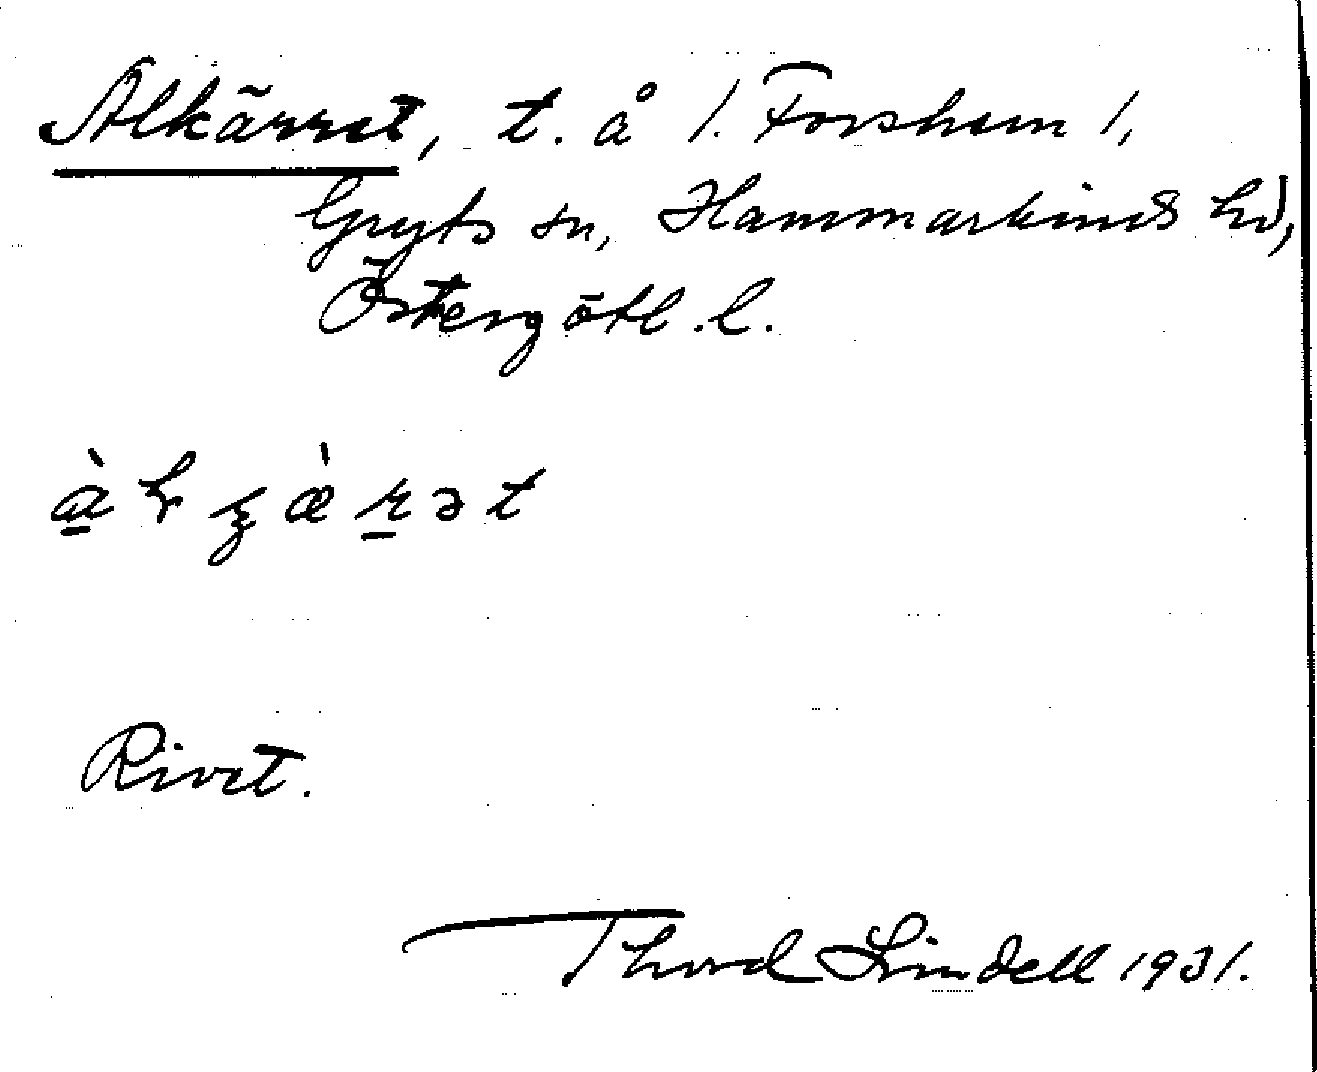 Alkärret, t. å /. Forshem 1,
Gryts sn, Hammarkinds hd,
Östergötl. l.
Rivet.
Thord Lindell 1931.